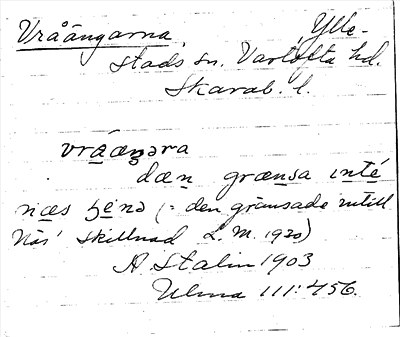 Vråängarna, Ylle-
stads sn. Vartofta hd.
Skarab. l.
vråæŋəra
dæn grænsa inté
næs ʒénə (: den gränsade intill
Näs' skillnad L. M. 1920)
A. Stalin 1903
Ulma 111:456.